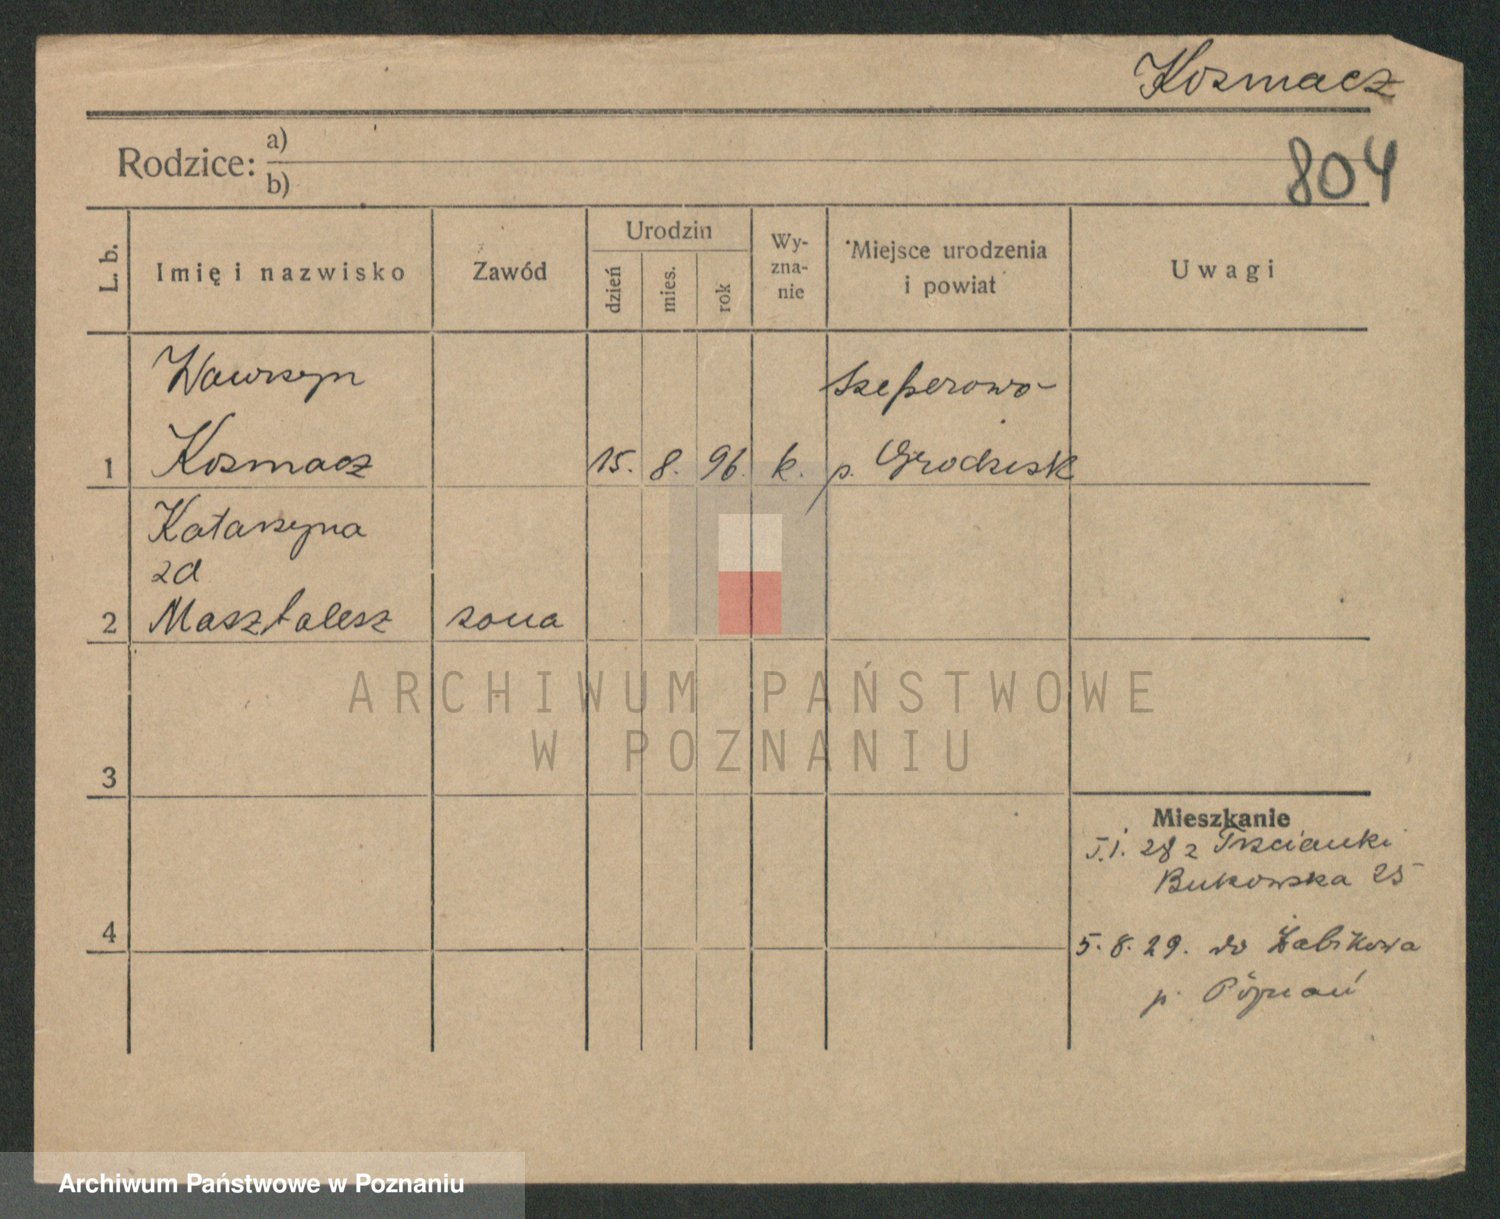 Kozmacz
804
Rodzice:
a)
b)
L. b.
Imię i nazwisko
Zawód
Urodzin
dzień
mies.
rok
Wy-
zna-
nie
Miejsce urodzenia
i powiat
Uwagi
Wawrzyn
1 Kozmacz 15. 8. 96. k. p. Grodzisk
Katarzyna
zd
2 Masztalerz żona
3
4
Mieszkanie
28 z Trzcianki
Bukowska 25
5.8.29. do Żabikowa
p. Poznań
ARCHIWUM PAŃSTWOWE
W POZNANIU
Archiwum Państwowe w Poznaniu